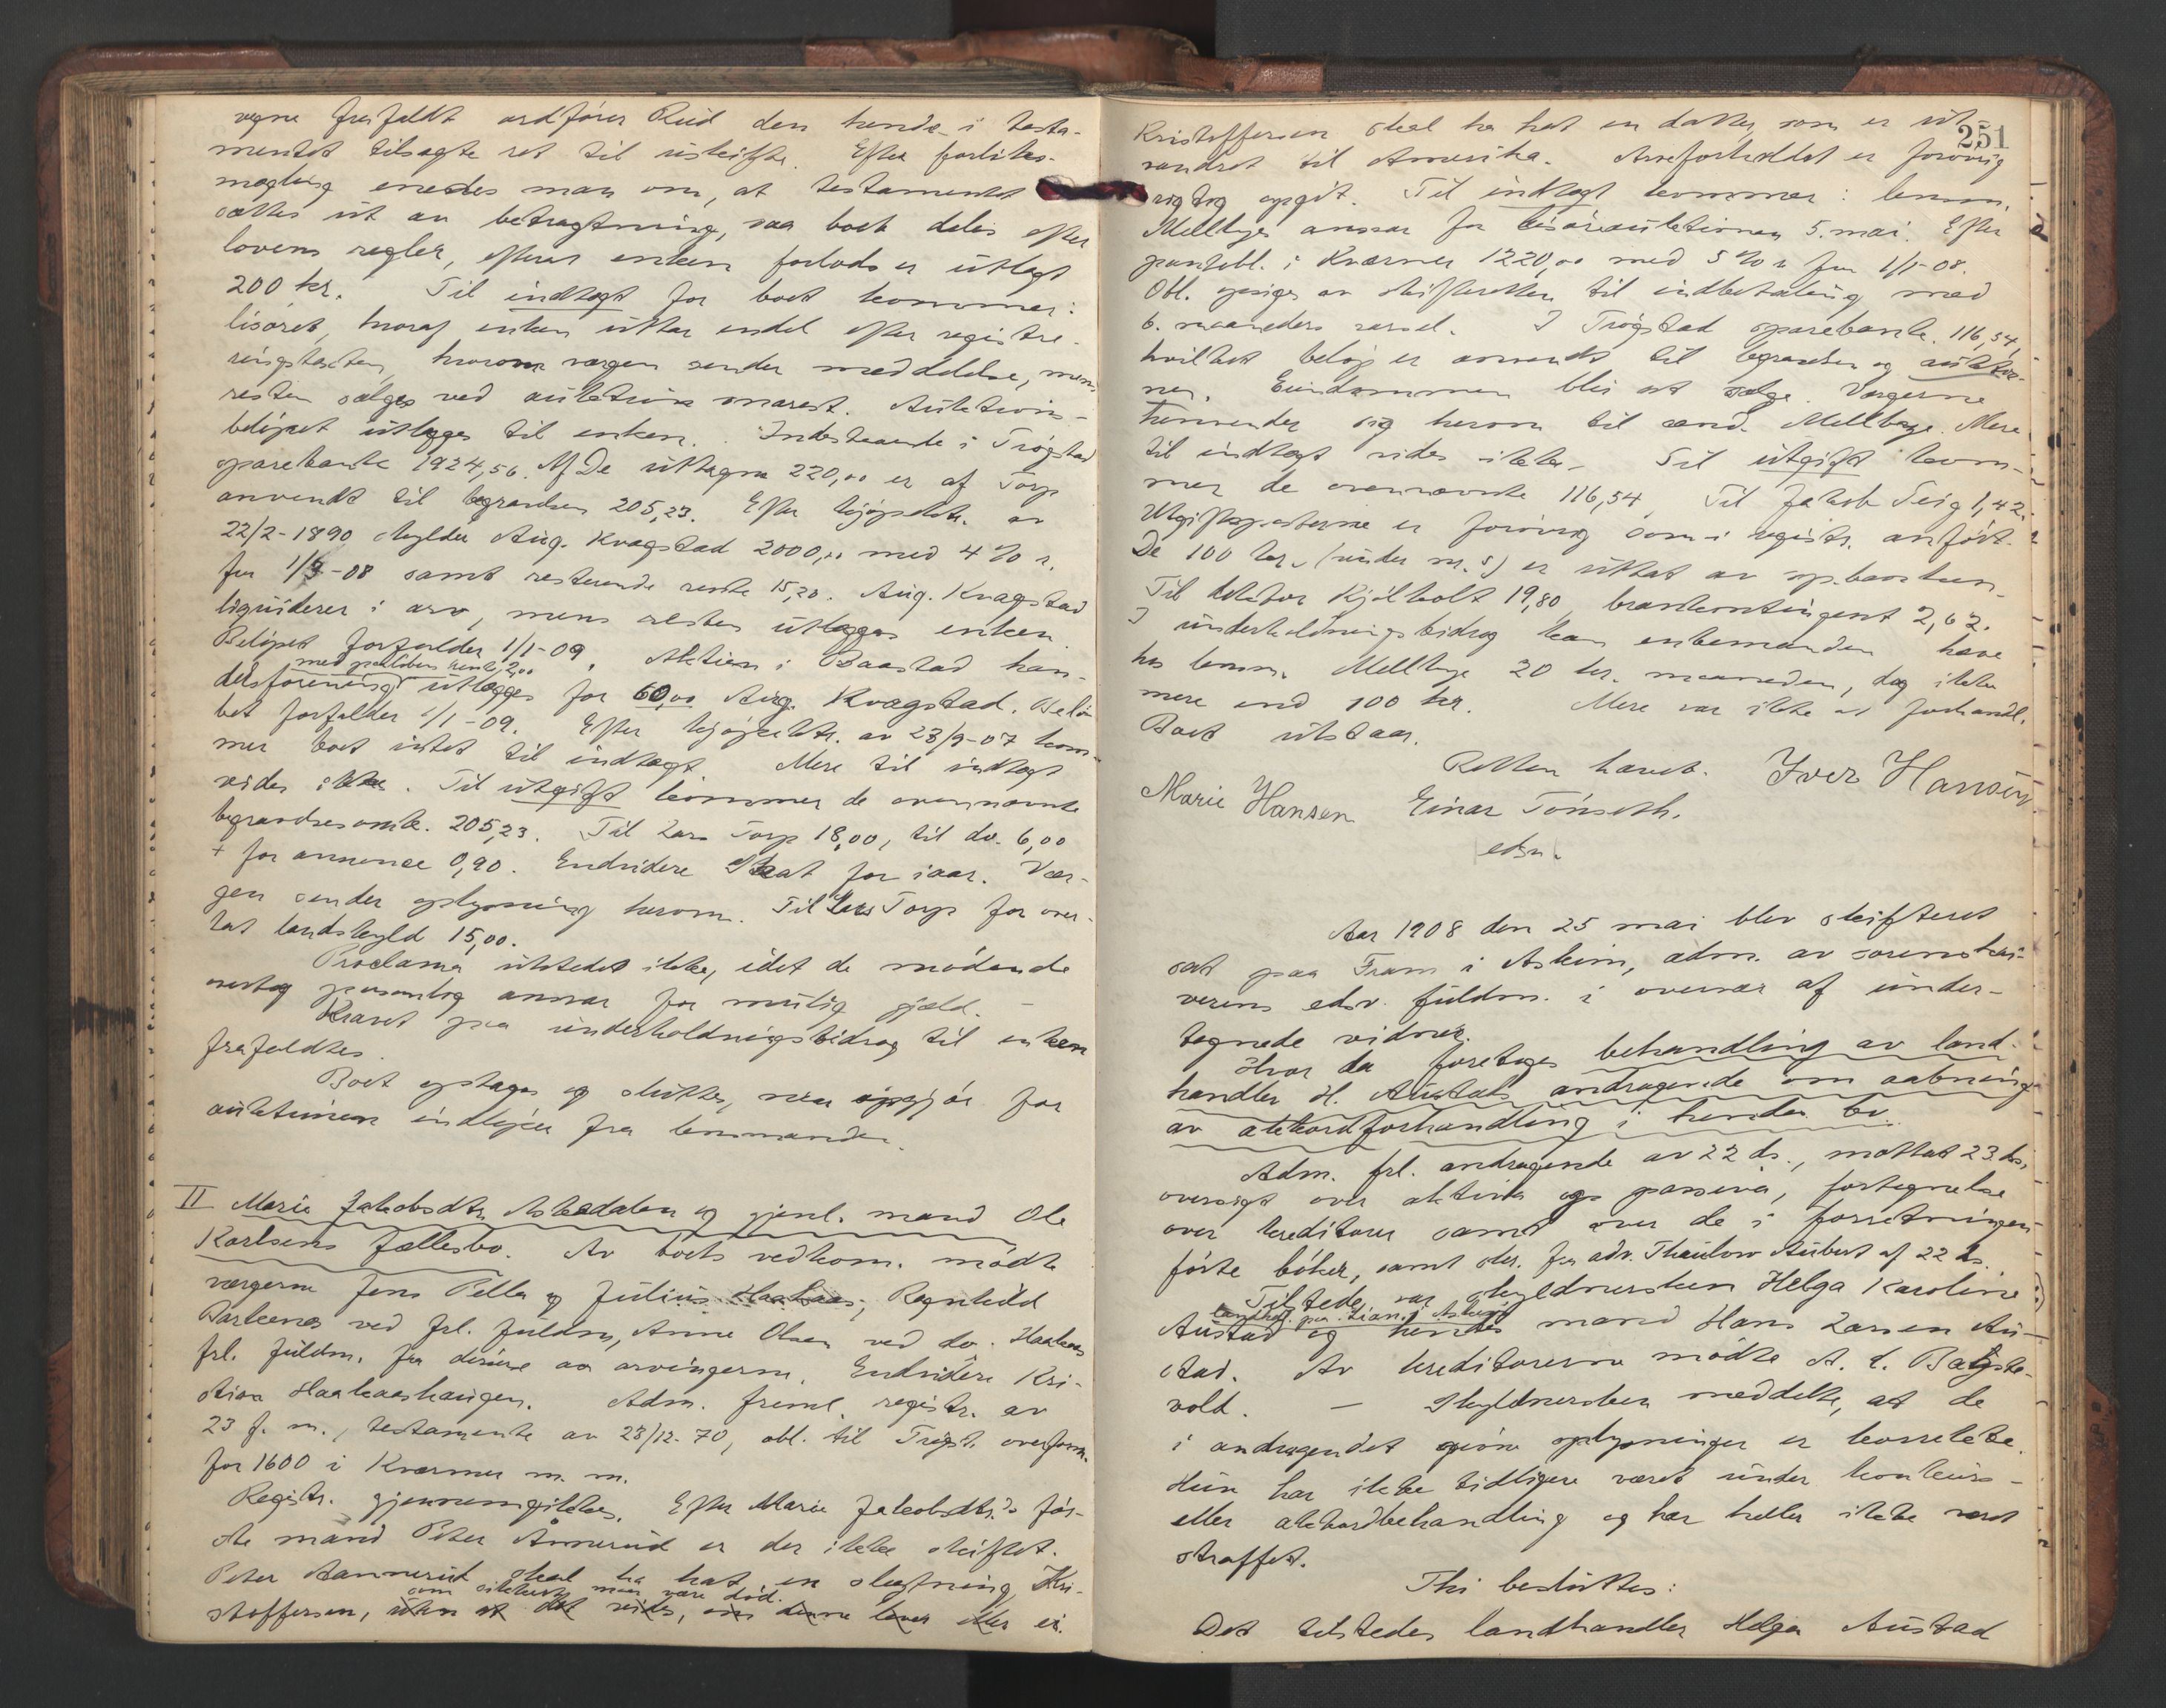 vegne frafaldt ordfører Rud den hende i testa-
mentet tilsagte ret til uskifte. Efter forliks-
mægling enedes man om, at testamentet
sættes ut av betragtning, saa boet deles efter
lovens regler, efterat enken forlods er utlagt
200 kr. Til indtægt for boet kommer:
løsøret, hvoraf enken uttar endel efter registre-
ringstaksten, hvorom vergen sender meddelelse, mens
resten sælges ved auktion snarest. Auktions-
beløpet utlægges til enken. Indestaaende i Trøgstad
sparebank 1924,56. Af De uttagne 220,00 er af Torp
anvendt til begravelsen 205,23. Efter kjøpektr. av
22/2-1890 skylder Aug. Kragstad 2000,00 med 4 % r.
fra 1/3-08 samt resterende rente 15,20. Aug. Kragstad
liquiderer i arv, mens resten utlægges enken.
Beløpet forfalder 1/1-09. Aktien i Baastad han-
med paaløben rente 2,00
delsforening utlægges for 60,00 Aug. Kragstad. Belø-
bet forfalder 1/1-09. Efter kjøpektr. av 23/9-07 kom-
mer boet intet til indtægt. Mere til indtægt
vides ikke. Til utgift kommer de ovennævnte
begravelsesomk. 205,23. Til Lars Torp 18,00, til do. 6,00
+ for annonce 0,90. Endvidere Skat for iaar. Ver-
gen sender oplysning herom. Til Lars Torp for over-
tat landskyld 15,00.
Proclama utstedes ikke, idet de mødende
overtog personlig ansvar for mulig gjæld. -
Kravet paa underholdningsbidrag til enken
frafaldtes.
Boet optages og sluttes, naar opgjør for
auktionen indløper fra lensmanden.
II Marie Jakobsdtr. Askedalen og gjenl. mand Ole
Karlsens fællesbo. Av boets vedkom. mødte
vergerne Jens Pella og Julius Haakaas, Ragnhild
ved frl. fuldm., Anne Olsen ved do. Haakaas
frl. fuldm. fra disse av arvingerne. Endvidere Kri-
stian Haakaashaugen. Adm. freml. registr. av
23 f. m., testamente av 28/12-70, obl. til Trøgst. overform.
for 1600 i Kværner m. m.
Registr. gjennemgikkes. Efter Marie Jakobsdtr.s før-
ste mand Peter Aannerud er der ikke skiftet.
Peter Aannerud skal ha hat en slegtning Kri-
som sikkert maa være død.
stoffersen, uten at det vides, om denne lever eller ei.
251
Kristoffersen skal ha hat en datter, som er ut-
vandret til Amerika. Arveforholdet er forøvrig
rigtig opgit. Til indtægt kommer: lensm.
Mellbyes ansvar for løsøreauktionen 5. mai. Efter
panteobl. i Kværner 1220,00 med 5 % r. fra 1/1-08.
Obl. opsiges av skifteretten til indbetaling med
6. maaneders varsel. I Trøgstad sparebank 116,54,
hvilket beløp er anvendt til begravelsen og auktio-
nen. Eiendommen blir at sælge. Vergerne
henvender sig herom til lensm. Mellbye. Mere
til indtægt vides ikke. Til utgift kom-
mer de ovennævnte 116,54. Til Jakob Teig 1,42.
Utgiftsposterne er forøvrig som i registr. anført.
De 100 kr. (under nr. 5) er uttat av sp.banken.
Til doktor Kjølholt 19,80, brankontingent 2,62.
I underholdningsbidrag kan enkemanden hæve
hos lensm. Mellbye 20 kr. maaneden, dog ikke
mere end 100 kr. Mere var ikke at forhandl.
Boet utstaar.
Retten hævet. Iver Hansen
Marie Hansen Einar Tønseth.
edsv.
Aar 1908 den 25 mai blev skifteret
sat paa Fram i Askim, adm. av sorenskri-
verens edsv. fuldm. i overvær af under-
tegnede vidner.
Hvor da foretoges behandling av land-
handler H. Austads andragende om aabning
av akkordforhandling i hendes bo.
Adm. frl. andragende av 22 ds., mottat 23 ds.,
oversigt over aktiva og passiva, fortegnelse
over kreditorer samt over de i forretningen
førte bøker, samt skr. fra adv. Thaulow Aubert af 22 ds.
Tilstede var skyldnersken Helga Karoline
landhdl. paa Fram i Askim
Austad og hendes mand Hans Larsen Au-
stad. Av kreditorerne mødte A. L. Bægste-
vold. - Skyldnersken meddelte, at de
i andragendet givne oplysninger er korrekte.
Hun har ikke tidligere været under konkurs-
eller akkordbehandling og har heller ikke været
straffet.
Thi besluttes:
Det tilstedes landhandler Helga Austad